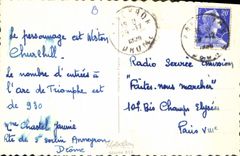 Le personnage est Wston
Churchill.
Le nombre d'entrées à
l'arc de Triomphe est
de 930.
Mme Chastel Jeannie
Rte de St Sorlin Anneyron
Drôme
Radio Service Emission
"Faites-nous marcher"
107 Bis Champs Elysées
Paris VIII